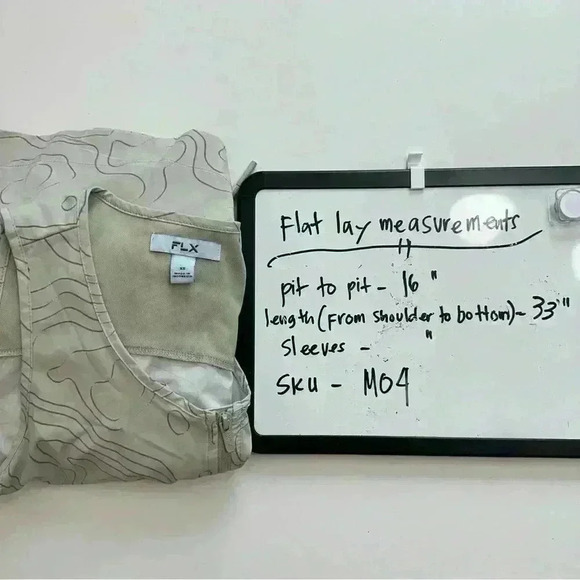 FLX
XS
Flat lay measurements
pit to pit - 16 "
length (From shoulder to bottom) - 33"
Sleeves - "
SKU - M04